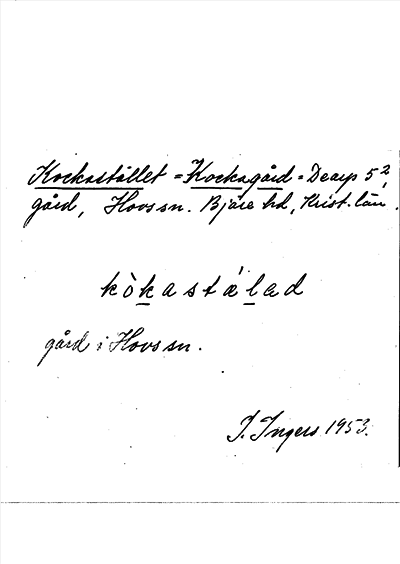 Kockastället = Kockagård = Dearp 5²,
gård, Hovs sn. Bjäre hd, Krist. län.
kòkastálad
gård i Hovs sn.
I. Ingers 1953.